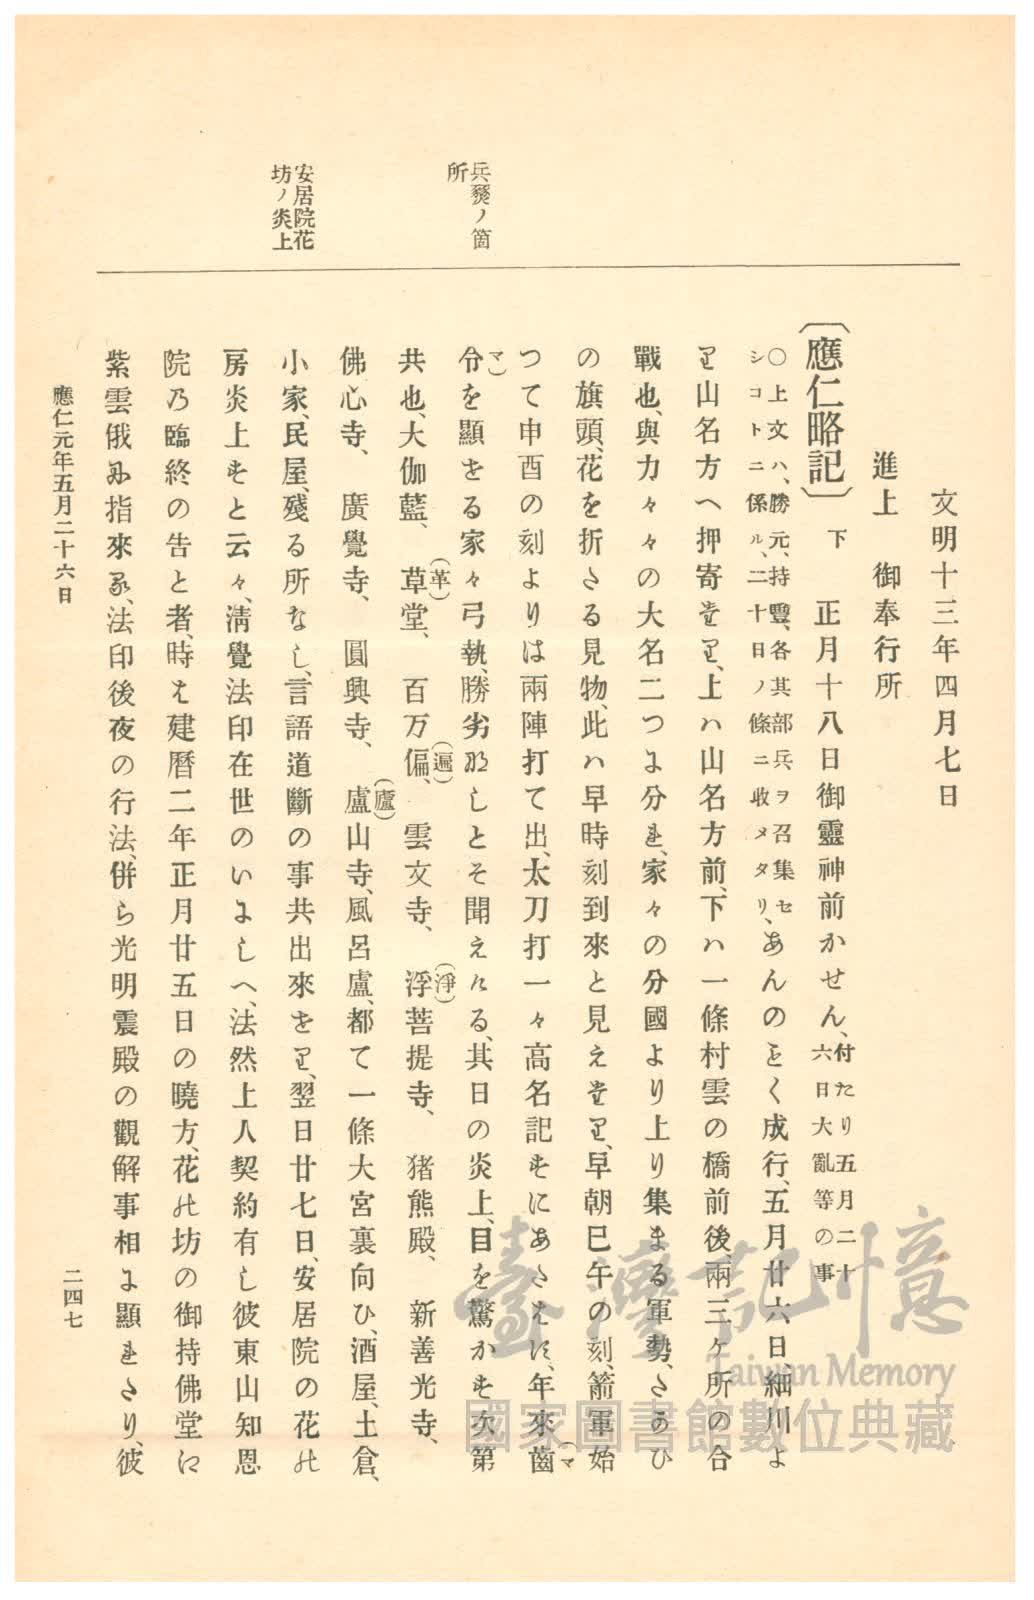 兵燹ノ箇
所
安居院花
坊ノ炎上
文明十三年四月七日
進上　御奉行所
〔應仁略記〕　下　正月十八日御靈神前かせん、付たり五月二十
六日大亂等の事
〇上文ハ、勝元、持豐、各其部兵ヲ召集セ
シコトニ係ル、二十日ノ條ニ收メタリ、
あんのことく成行、五月廿六日、細川よ
り山名方へ押寄せたり、上ハ山名方前、下ハ一條村雲の橋前後、兩三ケ所の合
戰也、與力々々の大名二つに分れ、家々の分國より上り集まる軍勢、さのひ
の旗頭、花を折たる見物、此ハ早時刻到來と見えたり、早朝巳午の刻、箭軍始
つて申酉の刻よりは兩陣打て出、太刀打一々高名記すにあたはす、年來齒(マ
マ)
令を顯せる家々弓執、勝劣なしとそ聞えける、其日の炎上、目を驚かす次第
共也、大伽藍、草(革)堂、百万偏(遍)、雲文寺、浮(淨)菩提寺、猪熊殿、新善光寺、
佛心寺、廣覺寺、圓興寺、盧(廬)山寺、風呂盧、都て一條大宮裏向ひ、酒屋、土倉、
小家、民屋、殘る所なし、言語道斷の事共出來せり、翌日廿七日、安居院の花の
房炎上すと云々、淸覺法印在世のいにしへ、法然上人契約有し彼東山知恩
院乃臨終の告と者、時は建曆二年正月廿五日の曉方、花の坊の御持佛堂に
紫雲俄に指來る、法印後夜の行法、併ら光明震殿の觀解事相に顯れたり、彼
應仁元年五月二十六日
二四七
臺灣記憶
Taiwan Memory
國家圖書館數位典藏